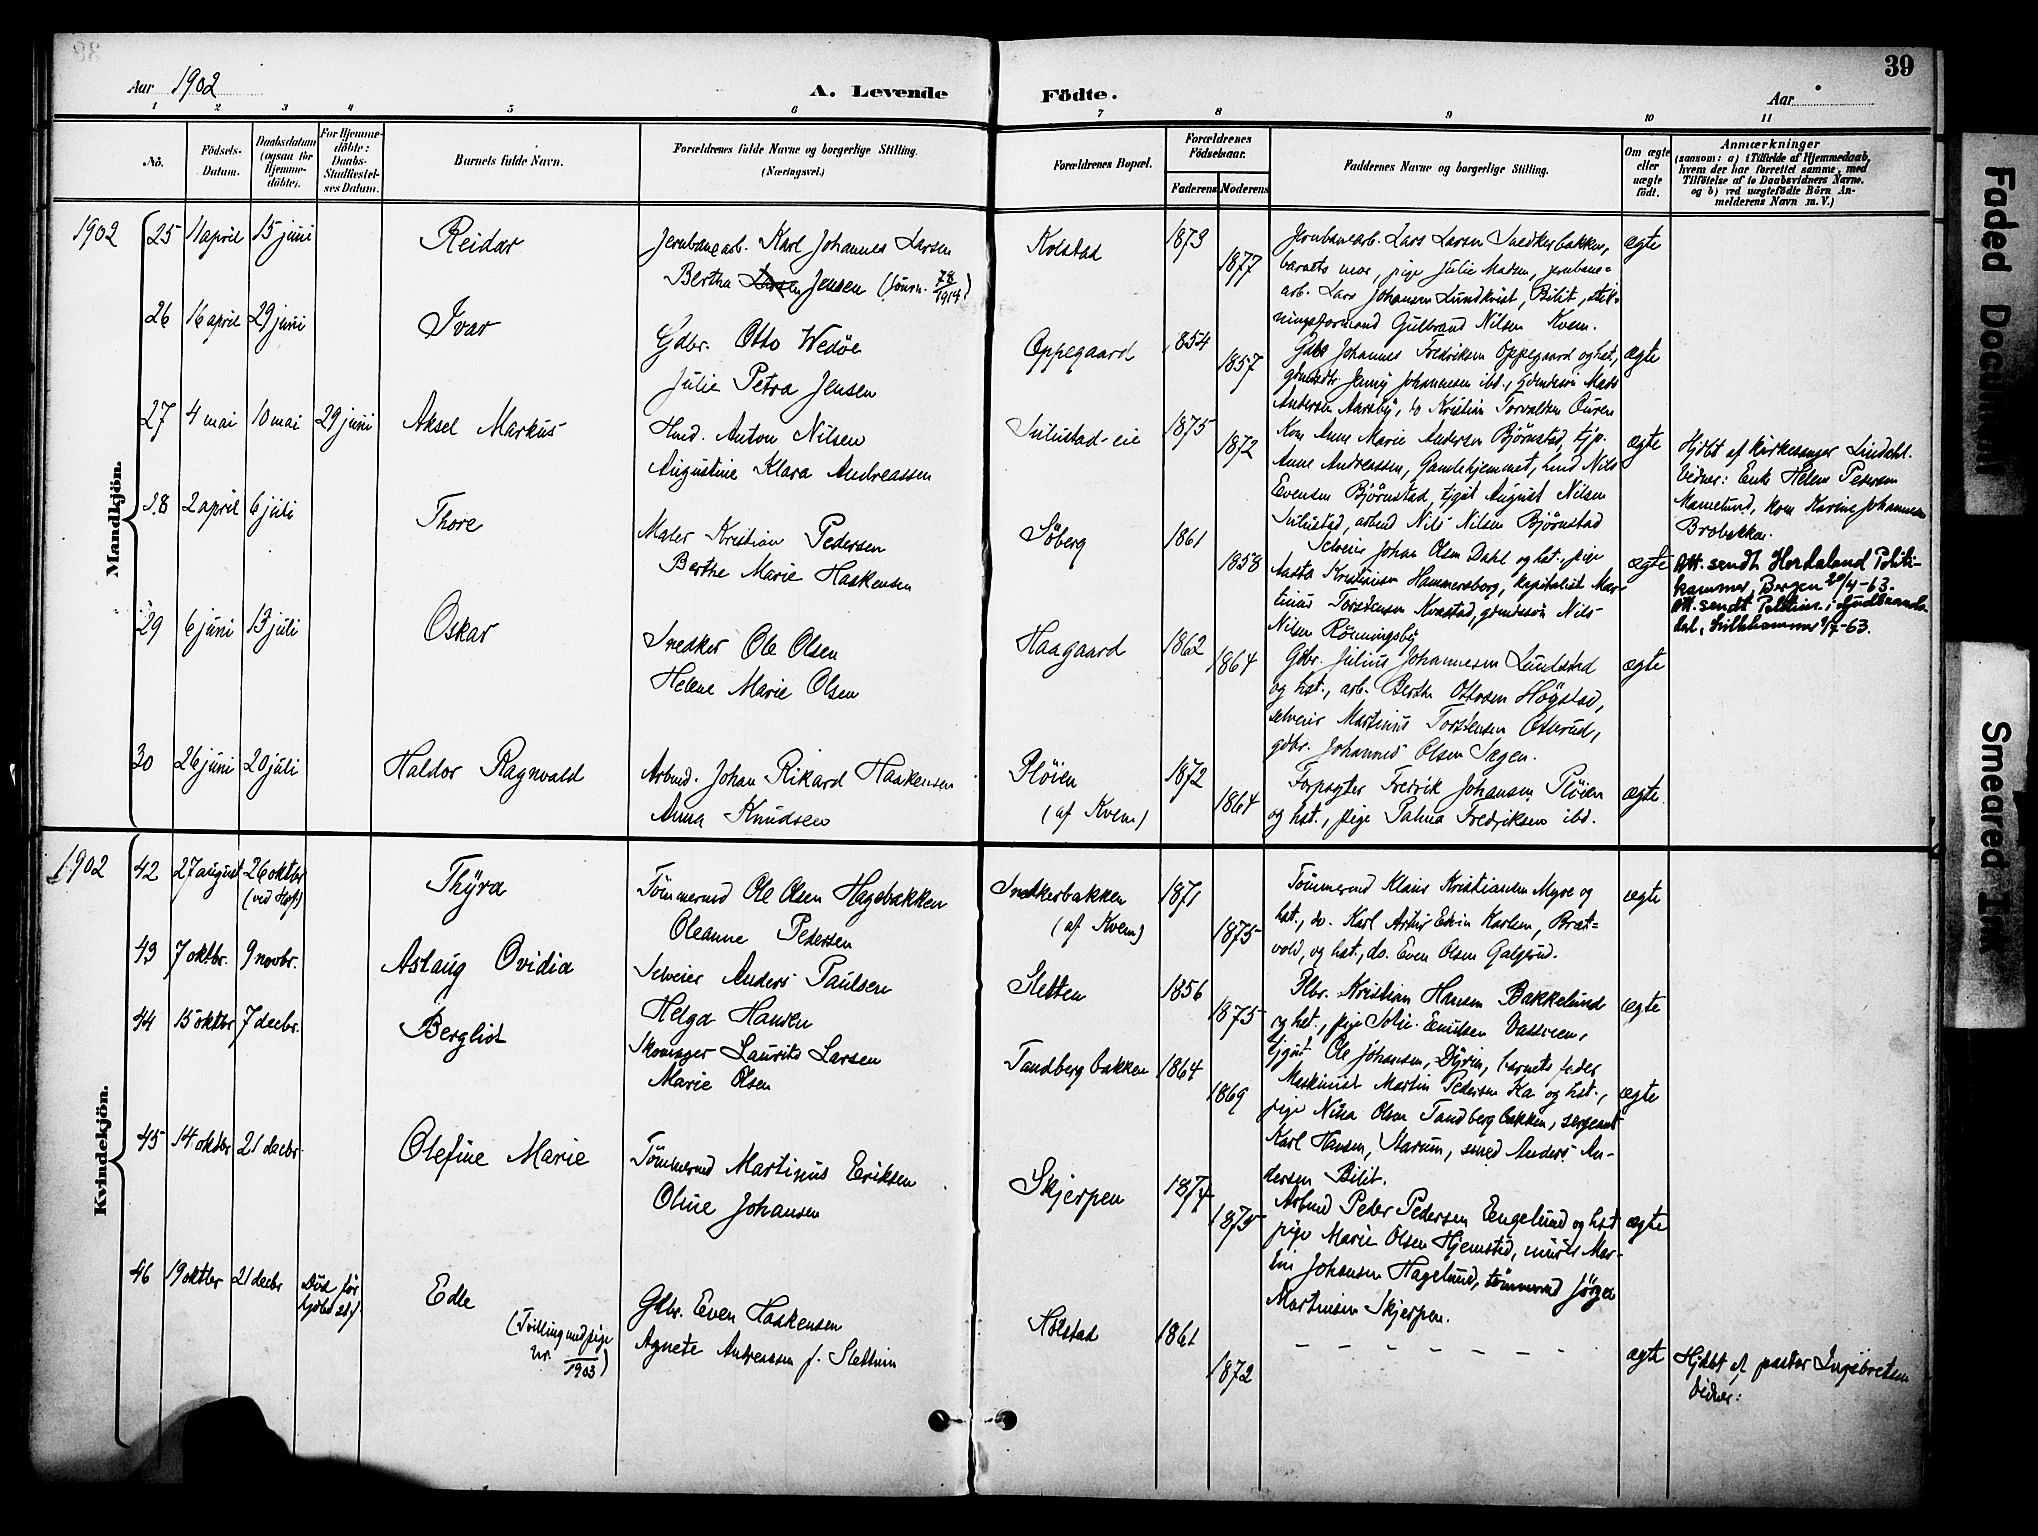 39
Aar 1902
A. Levende Födte.
Aar
1 2 3 4 5 6 7 8 9 10 11
No.
Födsels-Datum.
Daabsdatum (ogsaa for Hjemme-döbte).
For Hjemme-döbte: Daabs-Stadfæstel-ses Datum.
Barnets fulde Navn.
Forældrenes fulde Navne og borgerlige Stilling. (Næringsvei.)
Forældrenes Bopæl.
Forældrenes Födselsaar.
Faderens Moderens
Faddernes Navne og borgerlige Stilling.
Om ægte eller uægte födt.
Anmærkninger
(saasom: a) i Tilfælde af Hjemmedaab, hvem der har forrettet samme, med Tilföielse af to Daabsvidners Navne. og b) ved uægtefödte Börn An-melderens Navn m. V.)
Mandkjön.
1902 25 11 april 15 juni Reidar
Jernbanearb. Karl Johannes Larsen
Bertha Jensen (Journ. 78/1914)
Kolstad 1873 1877
Jernbanearb. Lars Larsen Snedkerbakken,
barnets mor, pige Julie Madsen, jernbane=
arb. Lars Johansen Lundkvist, Bilit, stik-
ningsformand Gulbrand Nilsen Kvem.
ægte
26 16 april 29 juni Ivar
Gdbr. Otto Wedöe
Julie Petra Jensen
Oppegaard 1854 1857
Gdbr Johannes Fredriksen Oppegaard og hst,
gdmdtr Jenny Johannesen ibd., gdmdsön Mads
Andersen Aarsby, do Kristian Torvaldsen Ouren
ægte
27 4 mai 10 mai 29 juni Aksel Markus
Hmd. Anton Nilsen
Augustine Klara Andreassen
Sulustad-eie 1875 1872
Kone Anne Marie Andersen Bjørnstad, tjp.
Anne Andreassen, Gamlehjemmet, hmd Nils
Evensen Bjørnstad, tjgut August Nilsen
Sulustad, arbmd Nils Nilsen Bjørnstad
ægte
Hjdbt af kirkesanger Lindahl.
Vidner: Enke Helene Petersen
Mamelund, kone Karine Johannesen
Brobakken.
28 2 april 6 juli Thore
Maler Kristian Pedersen
Berthe Marie Haakensen
Söberg 1861 1858
Selveier Johan Olsen Dahl og hst., pige
Aasta Kristiansen Hammersborg, kapitalist Mar-
tinius Torstensen Kvastad, gdmdssön Nils
Nilsen Rönningsby
ægte
Att. sendt Hordaland Politi-
kammer, Bergen 20/4-63.
Att. sendt Politim. i Gudbrands-
dal, Lillehammer 9/7-63.
29 6 juni 13 juli Oskar
Snedker Ole Olsen
Helene Marie Olsen
Haagaard 1862 1864
Gdbr. Julius Johannesen Lundsted
og hst., arb. Berthe Ottosen Högstad,
selveier Martinus Torstensen Osbrud,
gdbr. Johannes Olsen Sagen.
ægte
30 26 juni 20 juli Haldor Ragnvald
Arbmd. Johan Rikard Haakensen
Anna Knudsen
Plöien
(af Kvem)
1872 1864
Forpagter Fredrik Johansen Plöien
og hst., pige Palma Fredriksen ibd.
ægte
Kvindekjön.
1902 42 27 august 26 oktbr
(ved Hof)
Thyra
Tömmermd Ole Olsen Hagebakken
Oleanne Pedersen
Snedkerbakken
(af Kvem)
1871 1875
Tömmermd Klaus Kristiansen Myre og
hst., do. Karl Artur Edvin Karlsen, Brat=
vold, og hst., do. Even Olsen Galgerud.
ægte
43 7 oktbr. 9 novbr. Aslaug Ovidia
Selveier Anders Paulsen
Helga Hansen
Sletten 1856 1875
Plbr. Kristian Hansen Bakkelund
og hst., pige Sofie Emilsen Vassveen,
tjgut Ole Johansen, Dyrin, barnets fader
ægte
44 15 oktbr 7 decbr. Bergliot
Skomager Laurits Larsen
Marie Olsen
Tandbergbakken 1864 1869
Maskinist Martin Pedersen Ka og hst.,
pige Nilsa Olsen Tandbergbakken, sergeant
Karl Hansen, Starum, smed Anders An-
dersen Bilit.
ægte
45 14 oktbr 21 decbr. Olefine Marie
Tömmermd Martinus Eriksen
Oline Johansen
Skjerpen 1874 1875
Arbmd Peder Pedersen Engelund og hst
pige Marie Olsen Hjemstad, murer Mar-
tin Johansen Hagelund, tömmermd Jörgen
Martinsen Skjerpen.
ægte
46 19 oktbr 21 decbr
Död för
Edle
(Tvilling med pige
nr. /1903)
Gdbr. Even Haakensen
Agnete Andreassen f. Slettum
Holstad 1861 1872
- - - - - - -
ægte
Hjdbt af pastor Ingebretsen
Vidner:
Faded Document
Smeared Ink